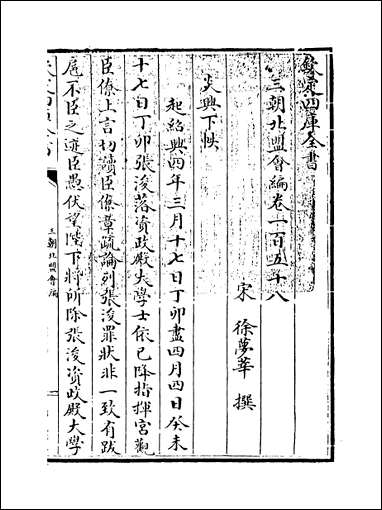 欽定四庫全書
三朝北盟會編卷一百五十八
宋 徐夢莘 撰
炎興下帙
起紹興四年三月十七日丁卯盡四月四日癸未
十七日丁卯張浚落資政殿大學士依已降指揮宮觀
臣僚上言切讀臣僚章疏論列張浚罪狀非一致有跋
扈不臣之迹臣愚伏望陛下將所除張浚資政殿大學
三朝北盟會編